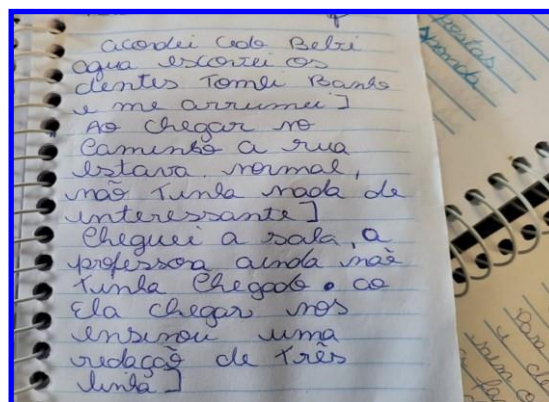 acordei cedo Bebi
agua escovei os
dentes Tomei Banho
e me arrumei]
Ao chegar no
Caminho a rua
estava normal,
não Tinha nada de
interessante]
Cheguei a sala, a
professora ainda não
Tinha Chegado. ao
Ela chegar nos
ensinou uma
redação de Três
linha]
postas
sponda
Para
e de
sem o
a fa